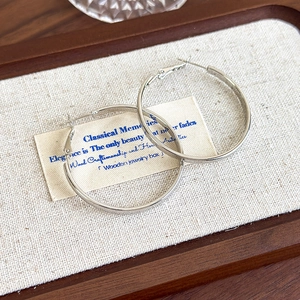 Classical Memories
Elegance is The only beauty that never fades
Wood Craftsmanship and
「 Wooden jewelry box